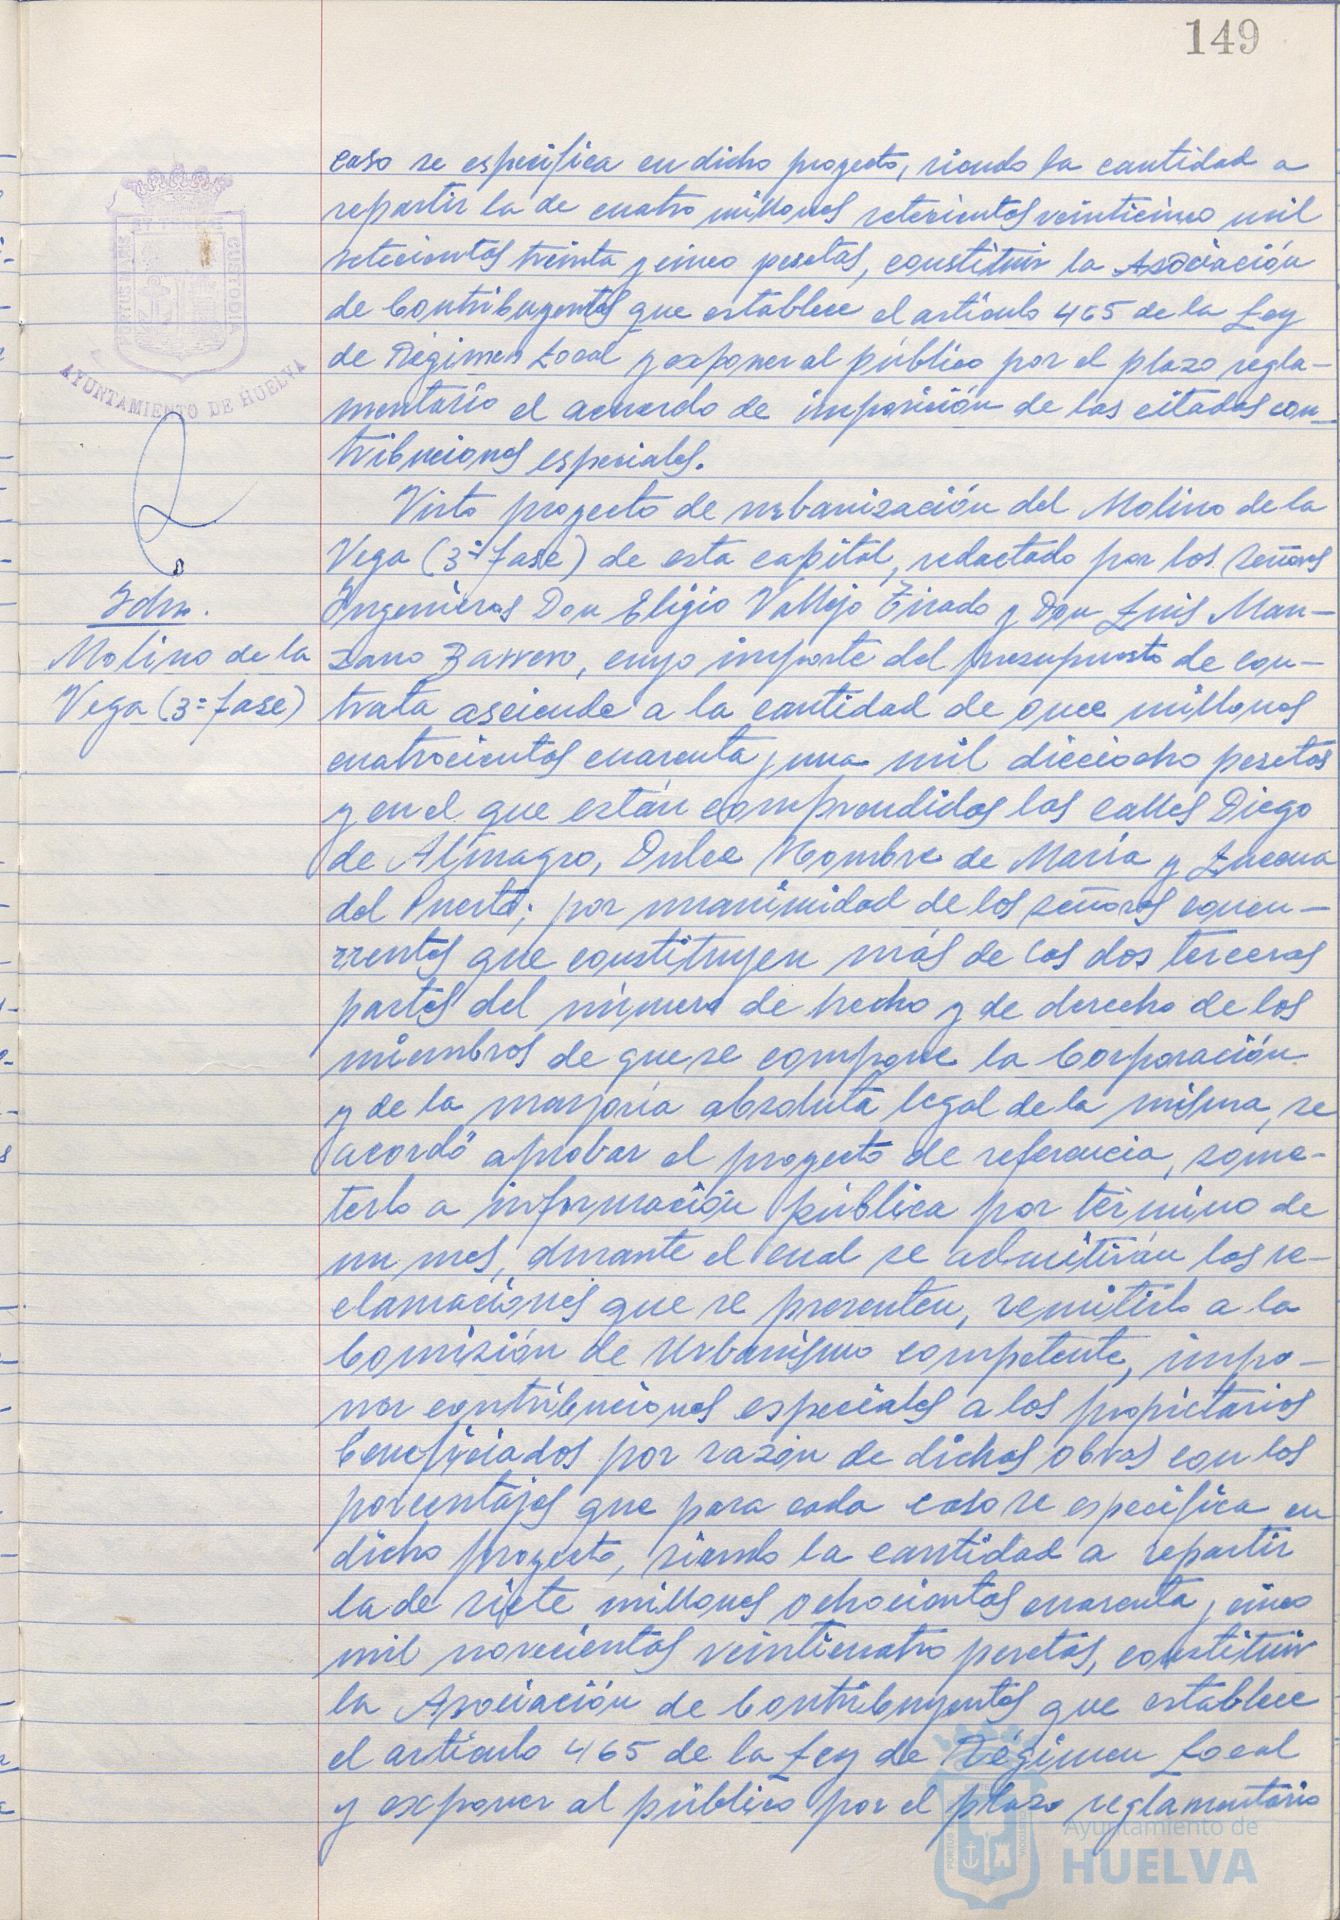 149
caso se especifica en dicho proyecto, siendo la cantidad a
repartir la de cuatro millones setecientos veinticinco mil
setecientos treinta y cinco pesetas, constituir la Asociación
de Contribuyentes que establece el artículo 465 de la Ley
de Régimen Local y exponer al público por el plazo regla-
mentario el acuerdo de imposición de las citadas con-
tribuciones especiales.
Visto proyecto de urbanización del Molino de la
Vega (3ª fase) de esta capital, redactado por los señores
Ingenieros Don Eligio Vallejo Tirado y Don Luis Man-
zano Barrero, cuyo importe del presupuesto de con-
trata asciende a la cantidad de once millones
cuatrocientos cuarenta y una mil dieciocho pesetas
y en el que están comprendidas las calles Diego
de Almagro, Dulce Nombre de María y Lucena
del Puerto; por unanimidad de los señores concu-
rrentes que constituyen más de las dos terceras
partes del número de hecho y de derecho de los
miembros de que se compone la Corporación
y de la mayoría absoluta legal de la misma, se
acordó aprobar el proyecto de referencia, some-
terlo a información pública por término de
un mes, durante el cual se admitirán las re-
clamaciones que se presenten, remitirlo a la
Comisión de Urbanismo competente, impo-
ner contribuciones especiales a los propietarios
beneficiados por razón de dichas obras con los
porcentajes que para cada caso se especifica en
dicho proyecto, siendo la cantidad a repartir
la de siete millones ochocientas cuarenta y cinco
mil novecientas veinticuatro pesetas, constituir
la Asociación de Contribuyentes que establece
el artículo 465 de la Ley de Régimen Local
y exponer al público por el plazo reglamentario
Idm.
Molino de la
Vega (3ª fase)
PORTUS MARIS ET TERRAE CUSTODIA
AYUNTAMIENTO DE HUELVA
Ayuntamiento de
HUELVA